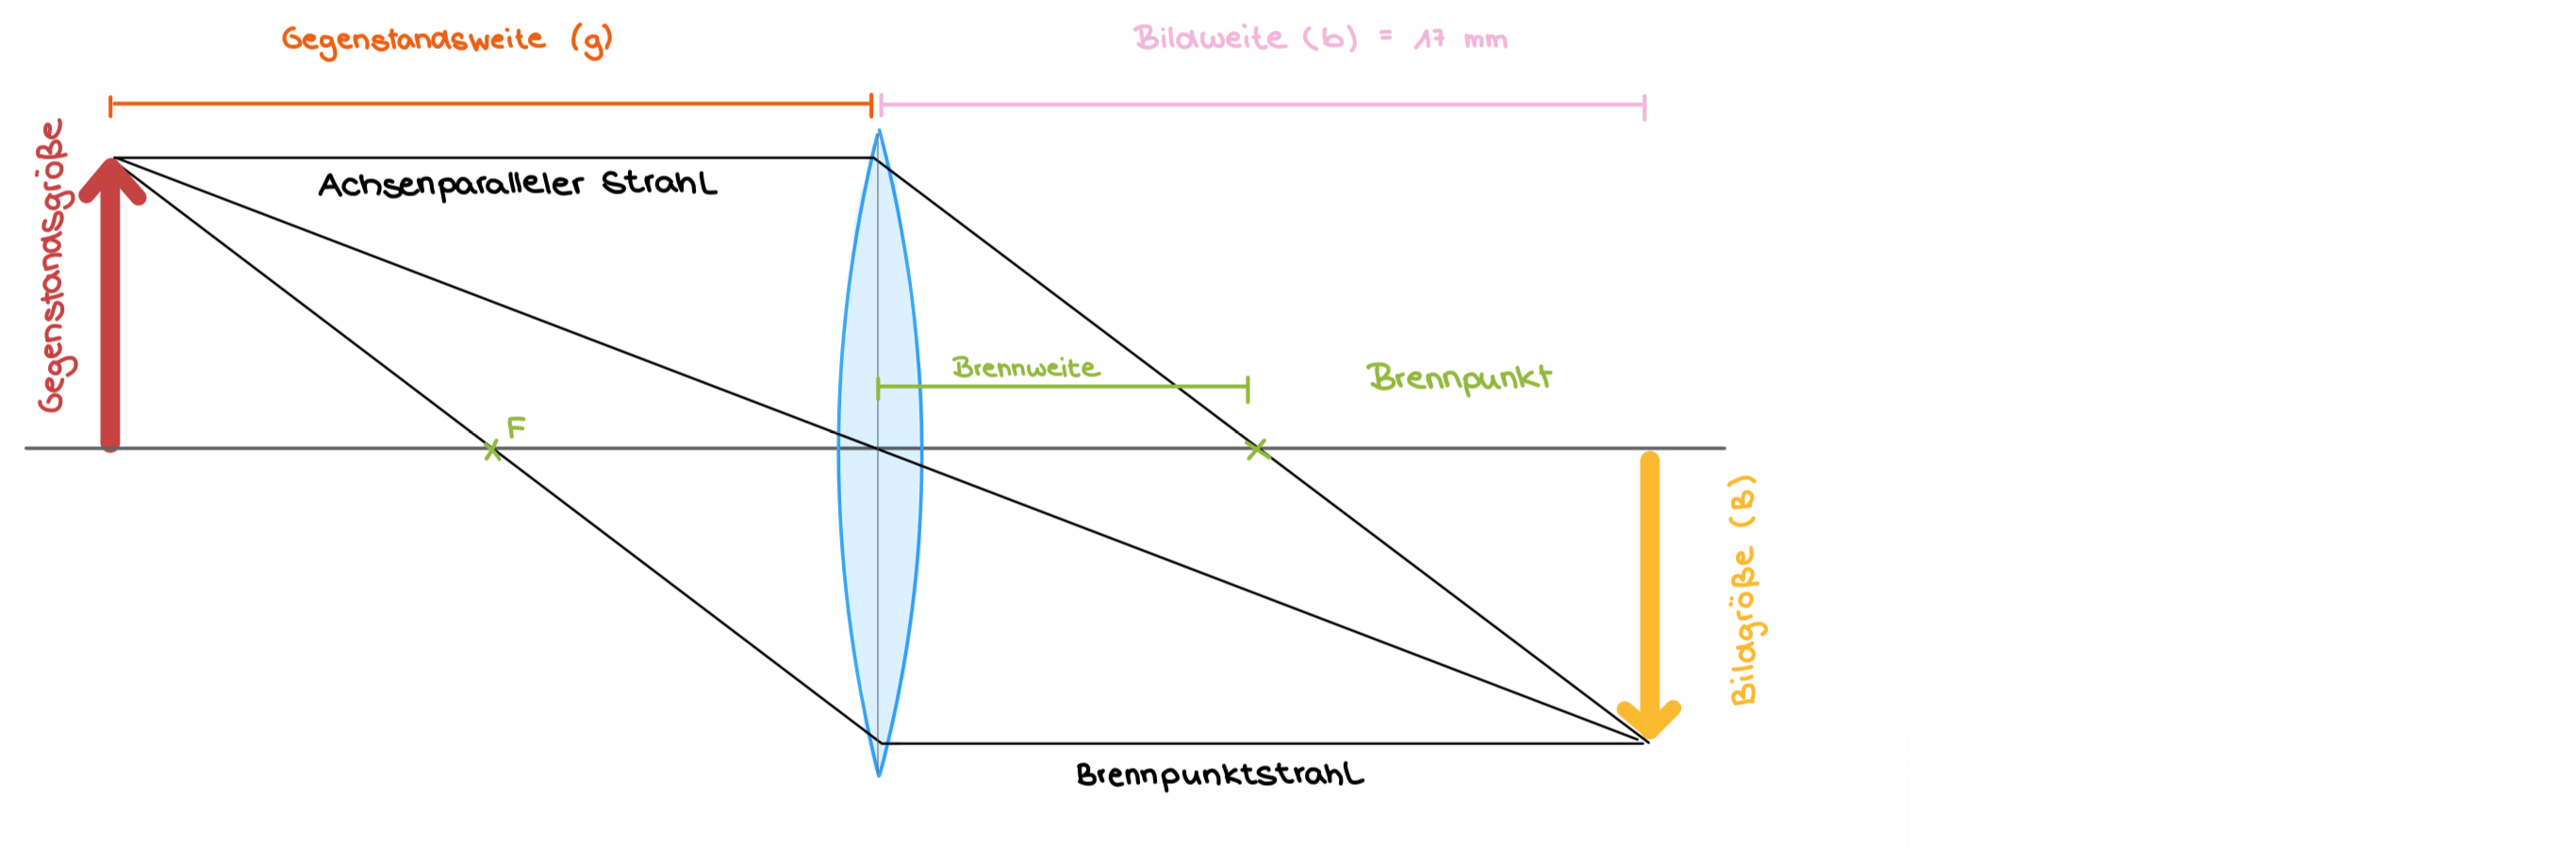 Gegenstandsweite (g)
Bildweite (b) = 17 mm
Gegenstandsgröße
Achsenparalleler Strahl
Brennweite
Brennpunkt
F
Bildgröße (B)
Brennpunktstrahl